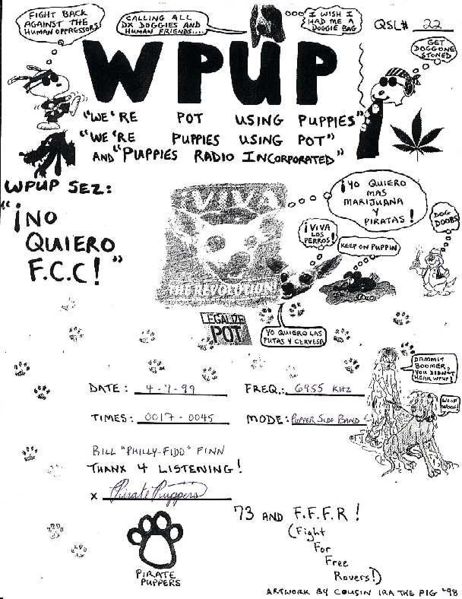 FIGHT BACK
AGAINST THE
HUMAN OPPRESSORS
CALLING ALL
DX DOGGIES AND
HUMAN FRIENDS....
I WISH I
HAD ME A
DOGGIE BAG
QSL# 22
GET
DOGGONE
STONED
WPUP
"WE'RE POT USING PUPPIES"
"WE'RE PUPPIES USING POT"
AND "PUPPIES RADIO INCORPORATED"
WPUP SEZ:
"¡NO
QUIERO
F.C.C!"
¡VIVA
THE REVOLUTION!
LEGALIZE
POT
¡YO QUIERO
MAS
MARIJUANA
Y
PIRATAS!
¡VIVA
LOS
PERROS!
KEEP ON PUPPIN
DOG
DOOBS
YO QUIERO LAS
PUTAS Y CERVESA
DAMMIT
BOOMER,
YOU DIDN'T
HEAR WPUP!
WOOF
WOOF!
DATE: 4-7-99
FREQ.: 6955 KHZ
TIMES: 0017-0045
MODE: PUPPER SIDE BAND
BILL "PHILLY-FIDO" FINN
THANX 4 LISTENING!
x Pirate Puppers
PIRATE
PUPPERS
73 AND F.F.F.R!
(Fight
For
Free
Rovers!)
ARTWORK BY COUSIN IRA THE PIG '98